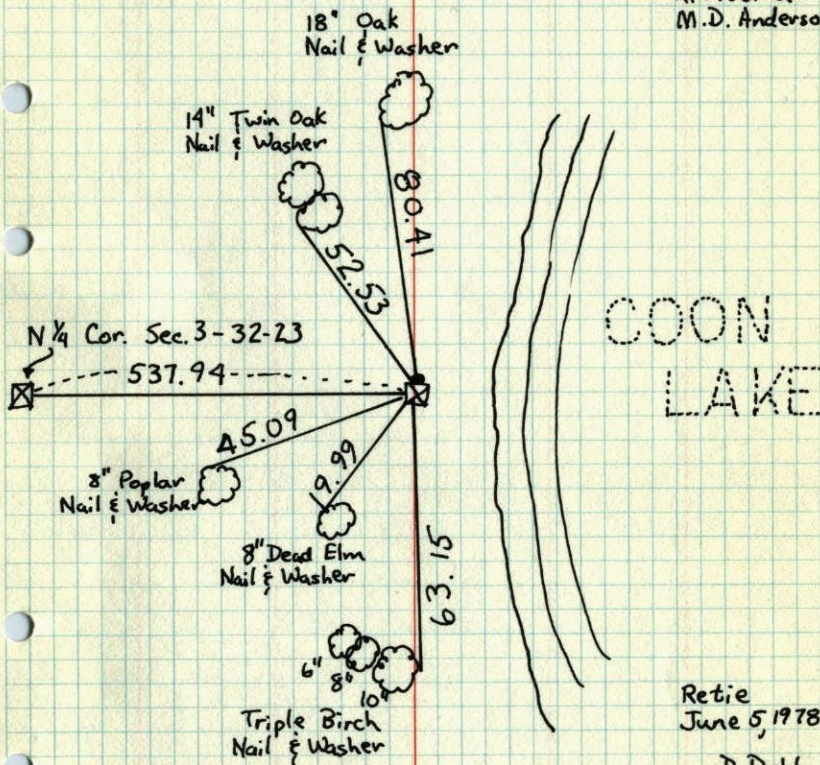 M.D. Anderso
18" Oak
Nail & Washer
14" Twin Oak
Nail & Washer
80.41
52.53
COON
LAKE
N 1/4 Cor. Sec. 3-32-23
537.94
45.09
8" Poplar
Nail & Washer
19.99
8" Dead Elm
Nail & Washer
63.15
6"
8"
10"
Triple Birch
Nail & Washer
Retie
June 5, 1978